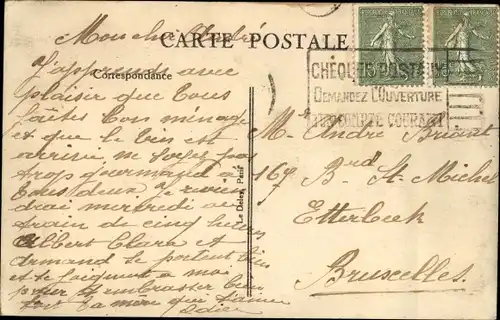 CARTE POSTALE
Correspondance
Mon cher André
J'apprends avec
plaisir que vous
faites bon ménage
et que le vin est
arrivé, ne soyez pas
trop gourmand
tous deux je
mercredi au
train de cinq heures
Albert Clara et
Armand se portent bien
et se joignent a moi
pour embrasser bien
fort ta mère que t'aime
Le Deley, Paris
CHÈQUES POSTAUX
DEMANDEZ L'OUVERTURE
COMPTE COURANT
15
Mr André Briart
167 Bvd St Michel
Etterbeek
Bruxelles.